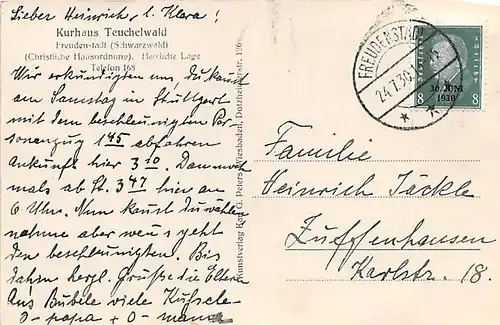 Lieber Heinrich, l. Klara!
Kurhaus Teuchelwald
Freudenstadt (Schwarzwald)
(Christliche Hausordnung). Herrliche Lage
Telefon 168
Wir erkundigten uns, Du kannst
am Samstag in Stuttgart
mit dem beschleunigten Per-
sonenzug 1 45 abfahren
Ankunft hier 3 10. Dann noch-
mals ab St. 3 47 hier an
6 Uhr. Nun kannst Du wählen
nehme aber wenn's geht
den beschleunigten. Bis
dahin herzl. Grüsse die Eltern
Aus Bubele viele Küssele
O-papa + O-mama
Kunstverlag Karl G. Peters, Wiesbaden, Dotzheimerstr. 126
FREUDENSTADT
24.7.30.
30. JUNI
1930
8 8
Familie
Heinrich Jäckle
Zuffenhausen
Karlstr. 18.